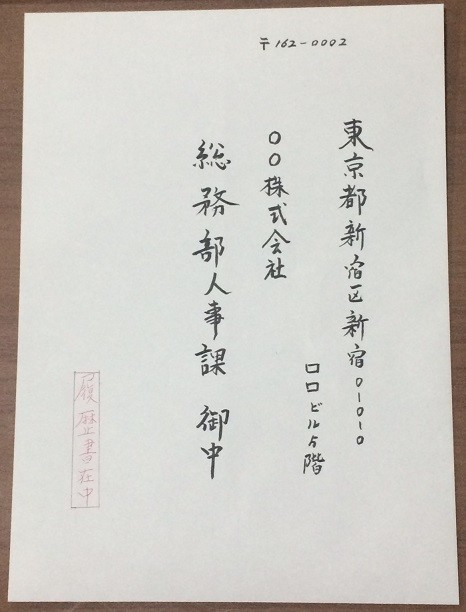 〒162-0002
東京都新宿区新宿0-0-0
ロロビル5階
〇〇株式会社
総務部人事課 御中
履歴書在中